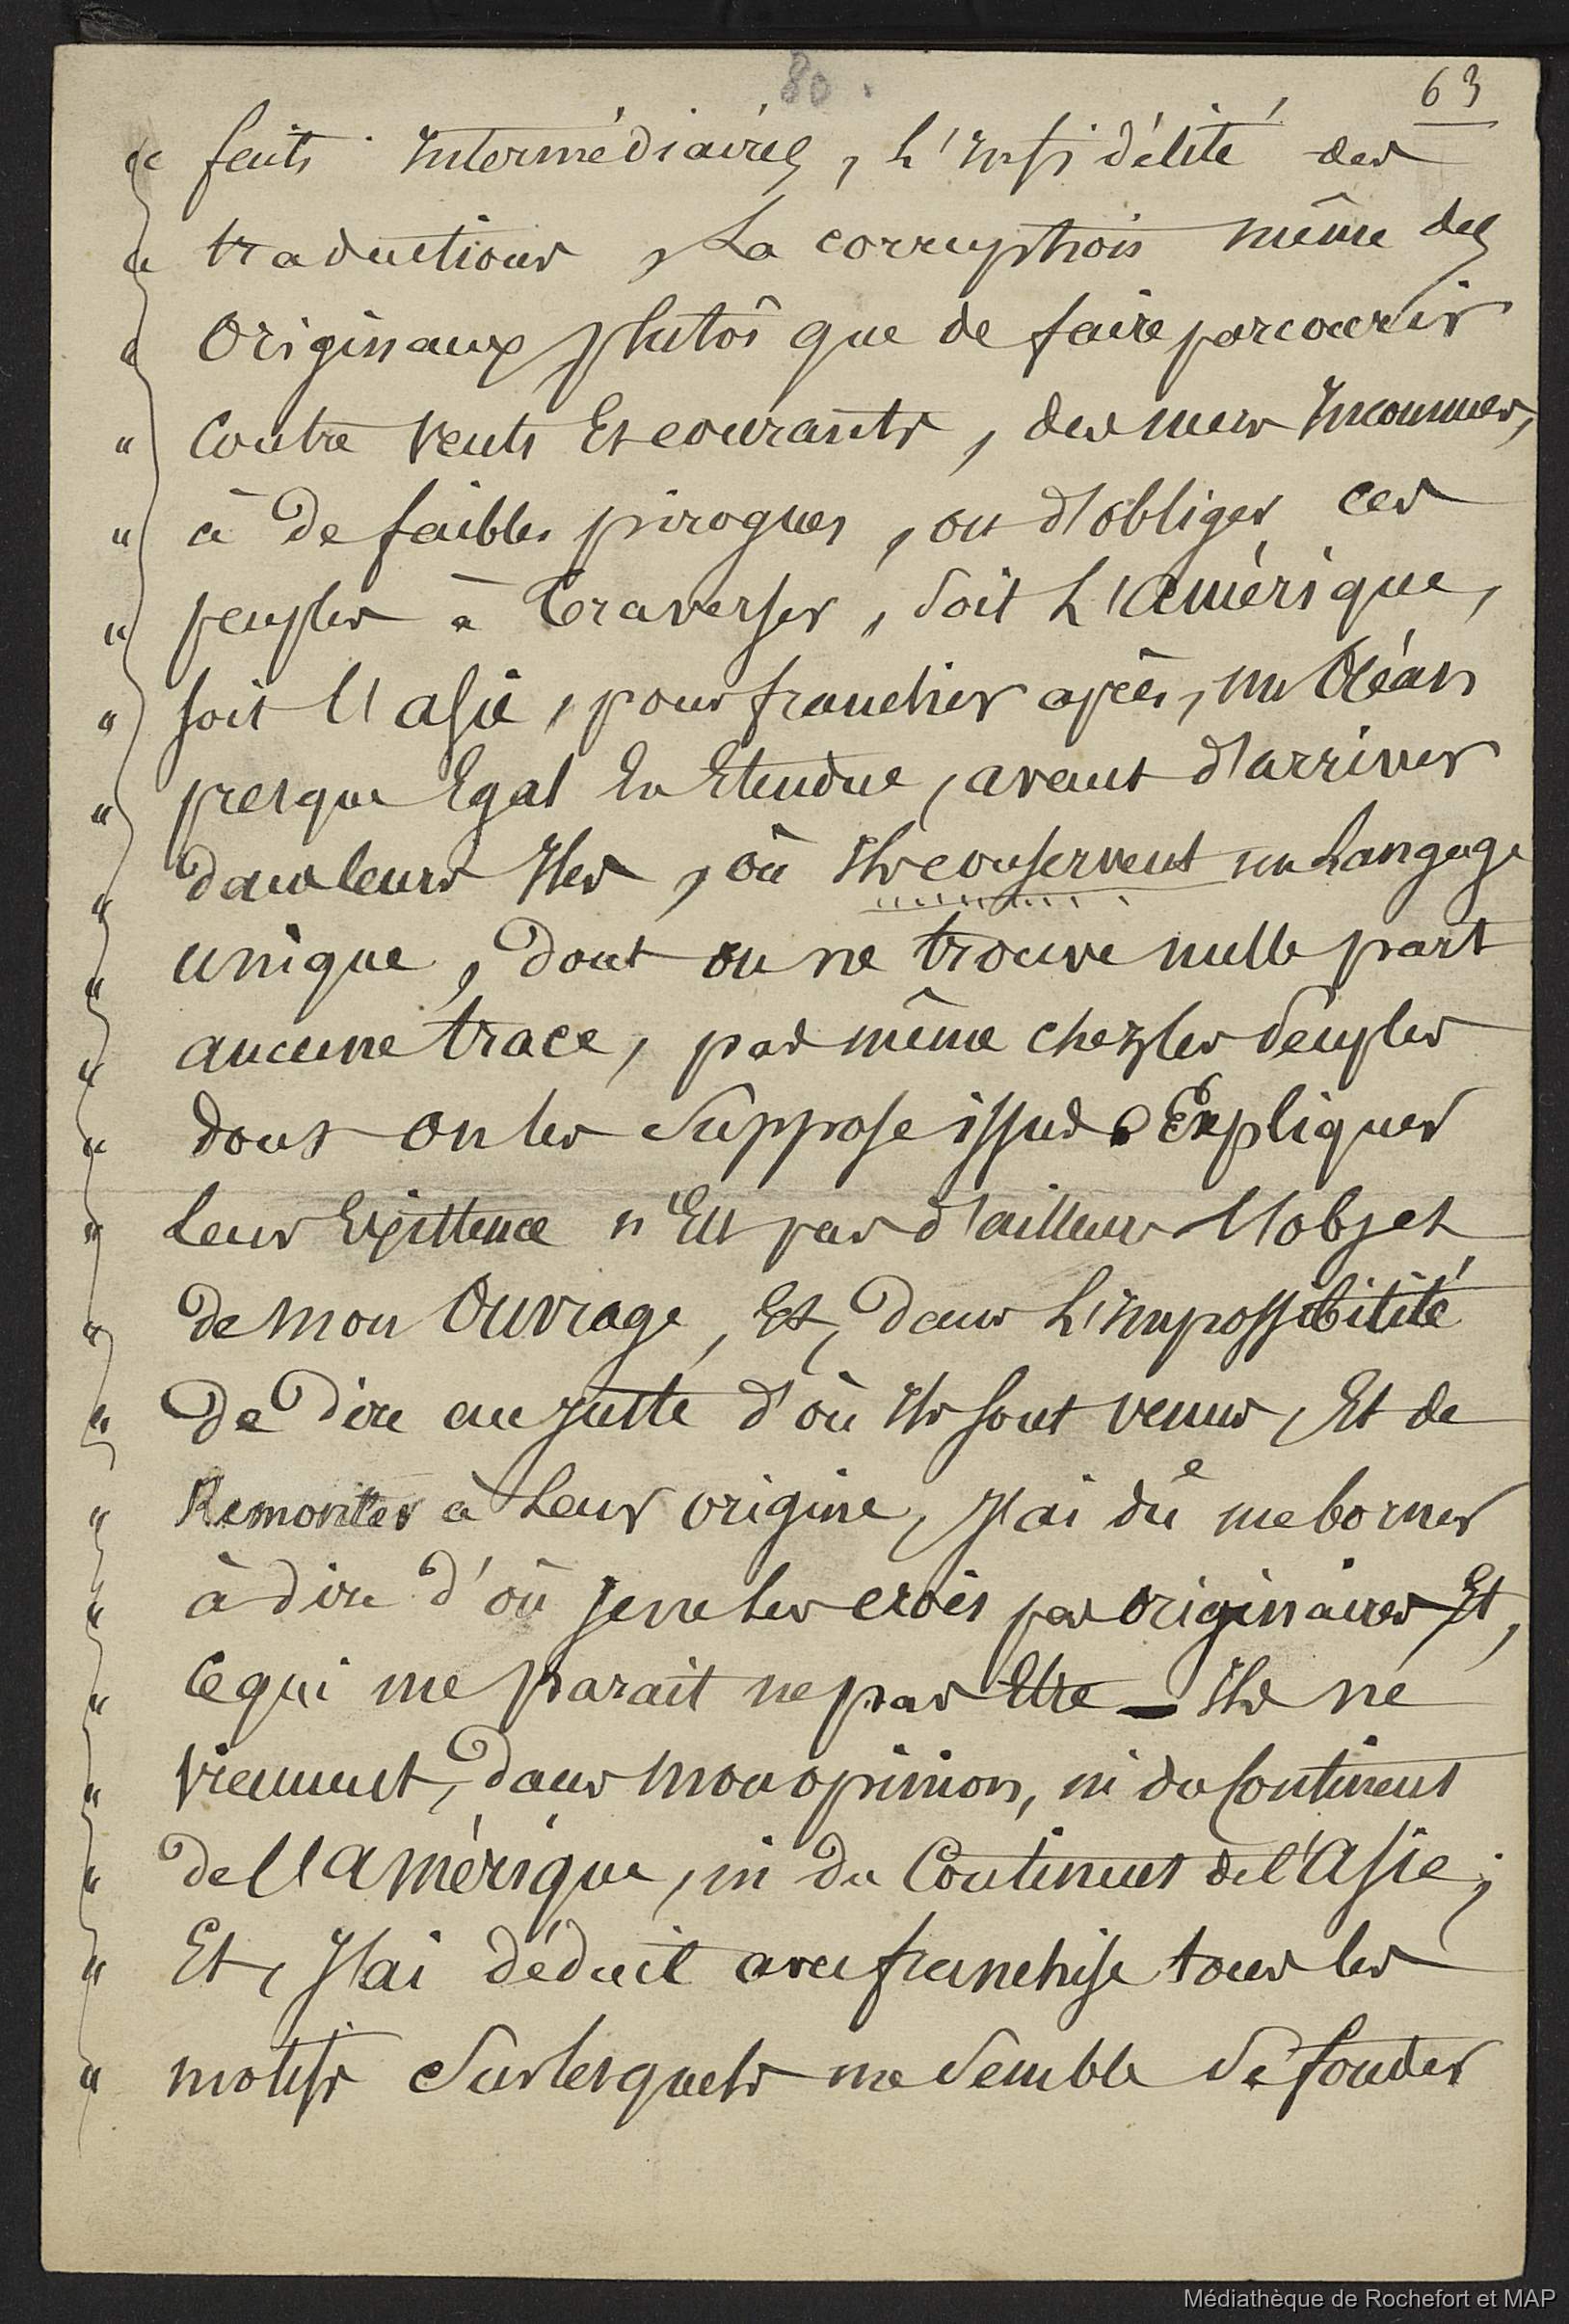 80.
63
" faits intermédiaires, L'infidélité des
" traductions, La corruption même des
" Originaux plutôt que de faire parcourir
" Contre vents Et courants, des mers Inconnues,
" à De faibles pirogues, ou d'obliger ces
" peuples à traverser, soit L'Amérique,
" soit l'asie, pour franchir après, un Océan
" presque Egal En Etendue, avant d'arriver
" dans leurs Iles, où Ils conservent un Langage
" unique, Dont on ne trouve nulle part
" aucune trace, pas même chez les Peuples
" dont on les Suppose issus. Expliquer
" Leur Existence n'Est pas d'ailleurs l'objet
" de mon Ouvrage, Et, Dans L'impossibilité
" De Dire au juste d'où Ils sont venus, Et de
" Remonter à Leur origine, j'ai dûe me borner
" à dire d'où je ne les crois pas originaires Et,
" Ce qui me parait ne pas Etre — Ils ne
" viennent, Dans mon opinion, ni du Continent
" de l'Amérique, ni du Continent de l'Asie;
" Et, j'ai déduit avec franchise tous les
" motifs Sur lesquels me Semble Se fonder
Médiathèque de Rochefort et MAP